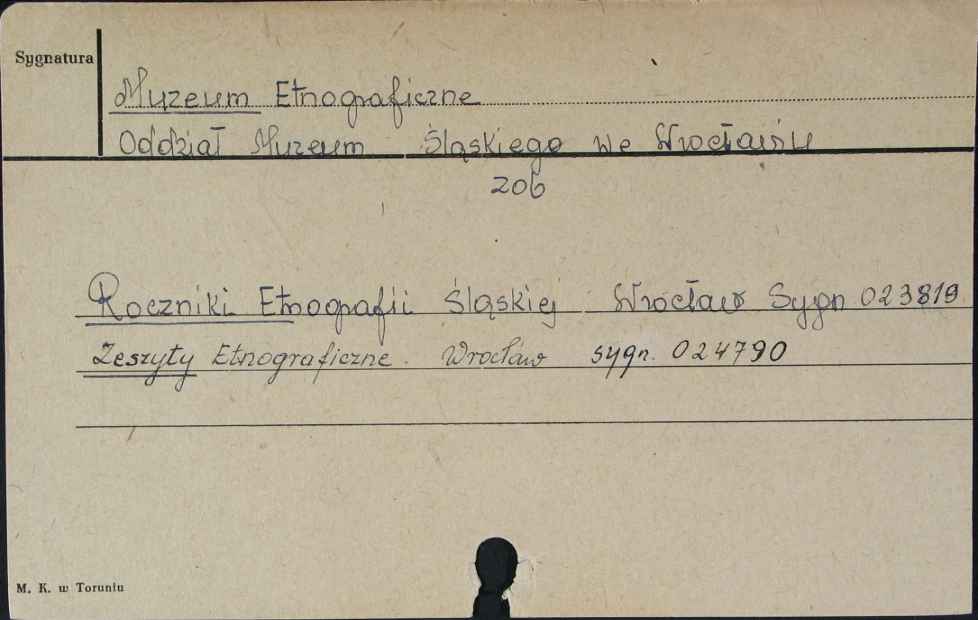 Sygnatura
Muzeum Etnograficzne
Oddział Muzeum Śląskiego we Wrocławiu
zob
Roczniki Etnografii Śląskiej Wrocław Sygn 023819
Zeszyty Etnograficzne. Wrocław sygn. 024790
M. K. w Toruniu